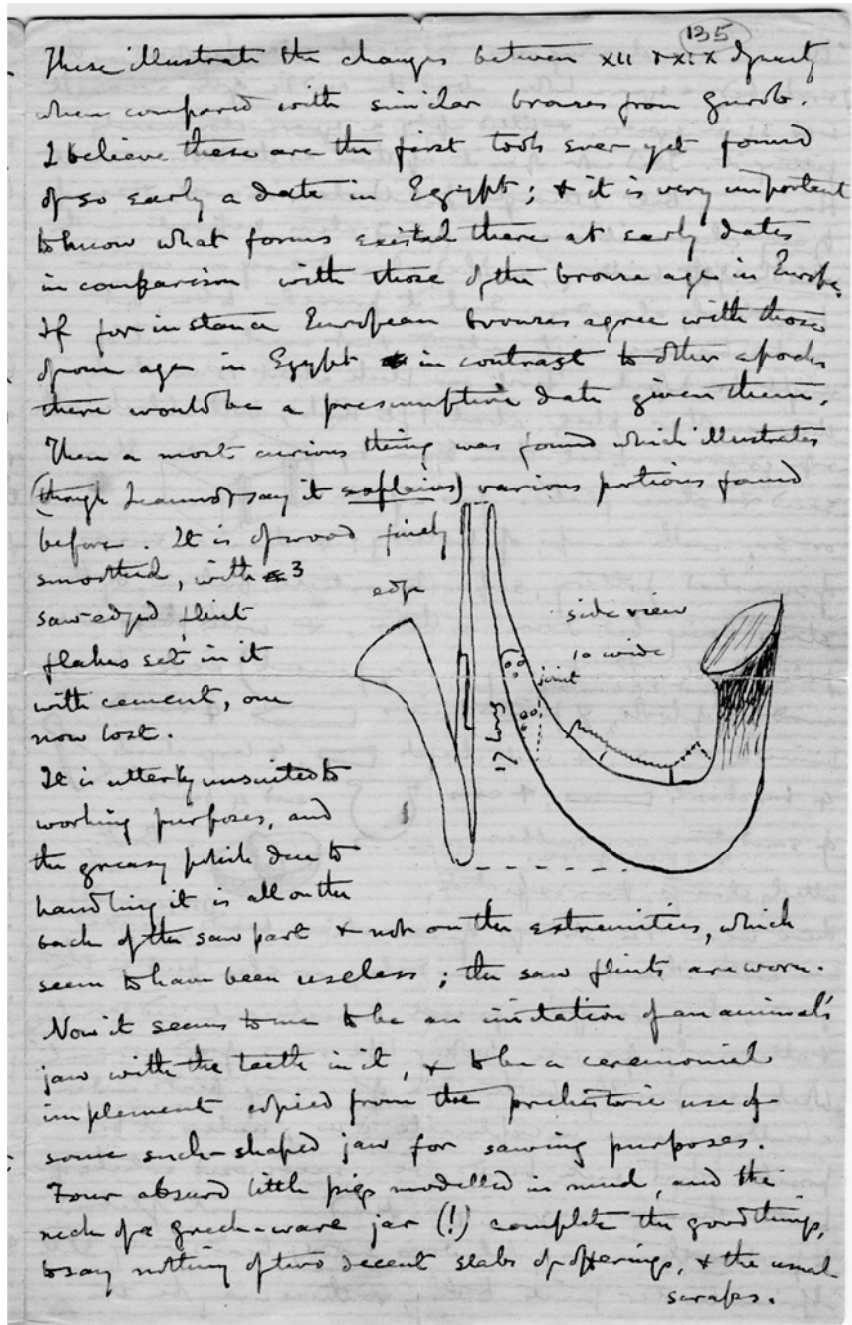 135
These illustrate the changes between XII & XIX dynasty
when compared with similar bronzes from Gurob.
I believe these are the first tools ever yet found
of so early a date in Egypt; & it is very important
to know what forms existed there at early dates
in comparison with those of the bronze age in Europe.
If for instance European bronzes agree with those
of one age in Egypt in contrast to other epochs
there would be a presumptive date given them.
Then a most curious thing was found which illustrates
(though I cannot say it explains) various portions found
before. It is of wood finely
smoothed, with 3
saw-edged flint
flakes set in it
with cement, one
now lost.
edge
side view
to wide
joint
long
It is utterly unsuited to
working purposes, and
the greasy polish due to
handling it is all on the
back of the saw part & not on the extremities, which
seem to have been useless; the saw flints are worn.
Now it seems to me to be an imitation of an animal's
jaw with the teeth in it, & to be a ceremonial
implement copied from the prehistoric use of
some such-shaped jaw for sawing purposes.
Four absurd little pigs modelled in mud, and the
neck of a greek-ware jar (!) complete the good things,
to say nothing of two decent slabs of offerings, & the usual
scraps.